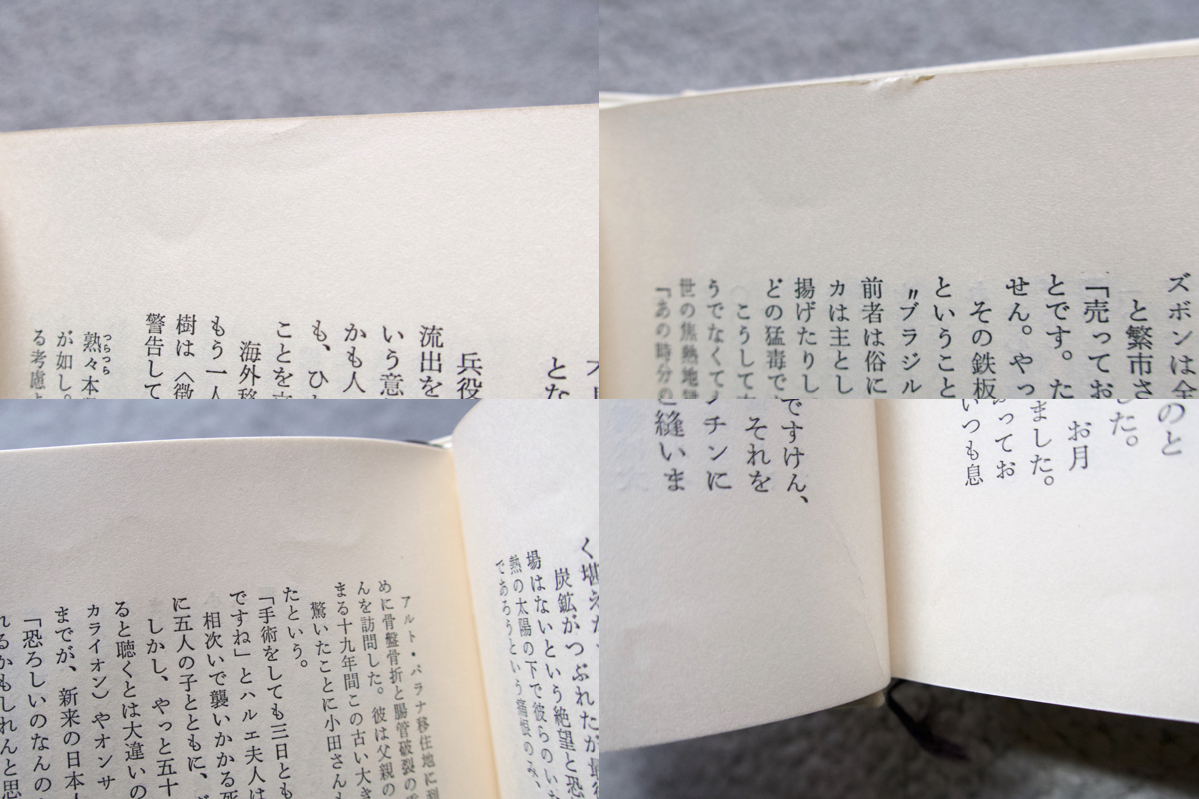 とな
兵役
流出を
いう意
かも人
も、ひ
ことを
海外移
もう一人
樹は〈徴
警告して
熟々本
つらつら
が如し。
る考慮
ズボンは全
と繁市さ
「売ってお
とです。た
せん。やっ
その鉄板
ということ
〝ブラジル
前者は俗に
カは主とし
揚げたりし
どの猛毒で
こうして
うでなくても
世の焦熱地
「あの時分
く増えた
炭鉱がつぶれたが
場はないという絶望と恐
熱の太陽の下で彼らのいた
であろうという
アルト・パラナ移住地に到
めに骨盤骨折と腸管破裂の
んを訪問した。彼は父親の
まる十九年間この古い大き
驚いたことに小田さん
たという。
「手術をしても三日とも
ですね」とハルエ夫人は
相次いで襲いかかる死
に五人の子とともに、
しかし、やっと五十
ると聴くとは大違いの
カライオン）やオンサ
までが、新来の日本人
「恐ろしいのなんの
れるかもしれんと思
のと
した。
お月
ました。
ってお
いつも息
ですけん、
それを
チンに
縫いま